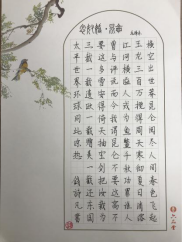 念奴娇·昆仑
横空出世莽昆仑阅尽人间春色飞起
玉龙三百万搅得周天寒彻夏日消溶
江河横溢人或为鱼鳖千秋功罪谁人
曾与评说而今我谓昆仑不要这高不
要这多雪安得倚天抽宝剑把汝裁为
三截一截遗欧一截赠美一截还东国
太平世界环球同此凉热